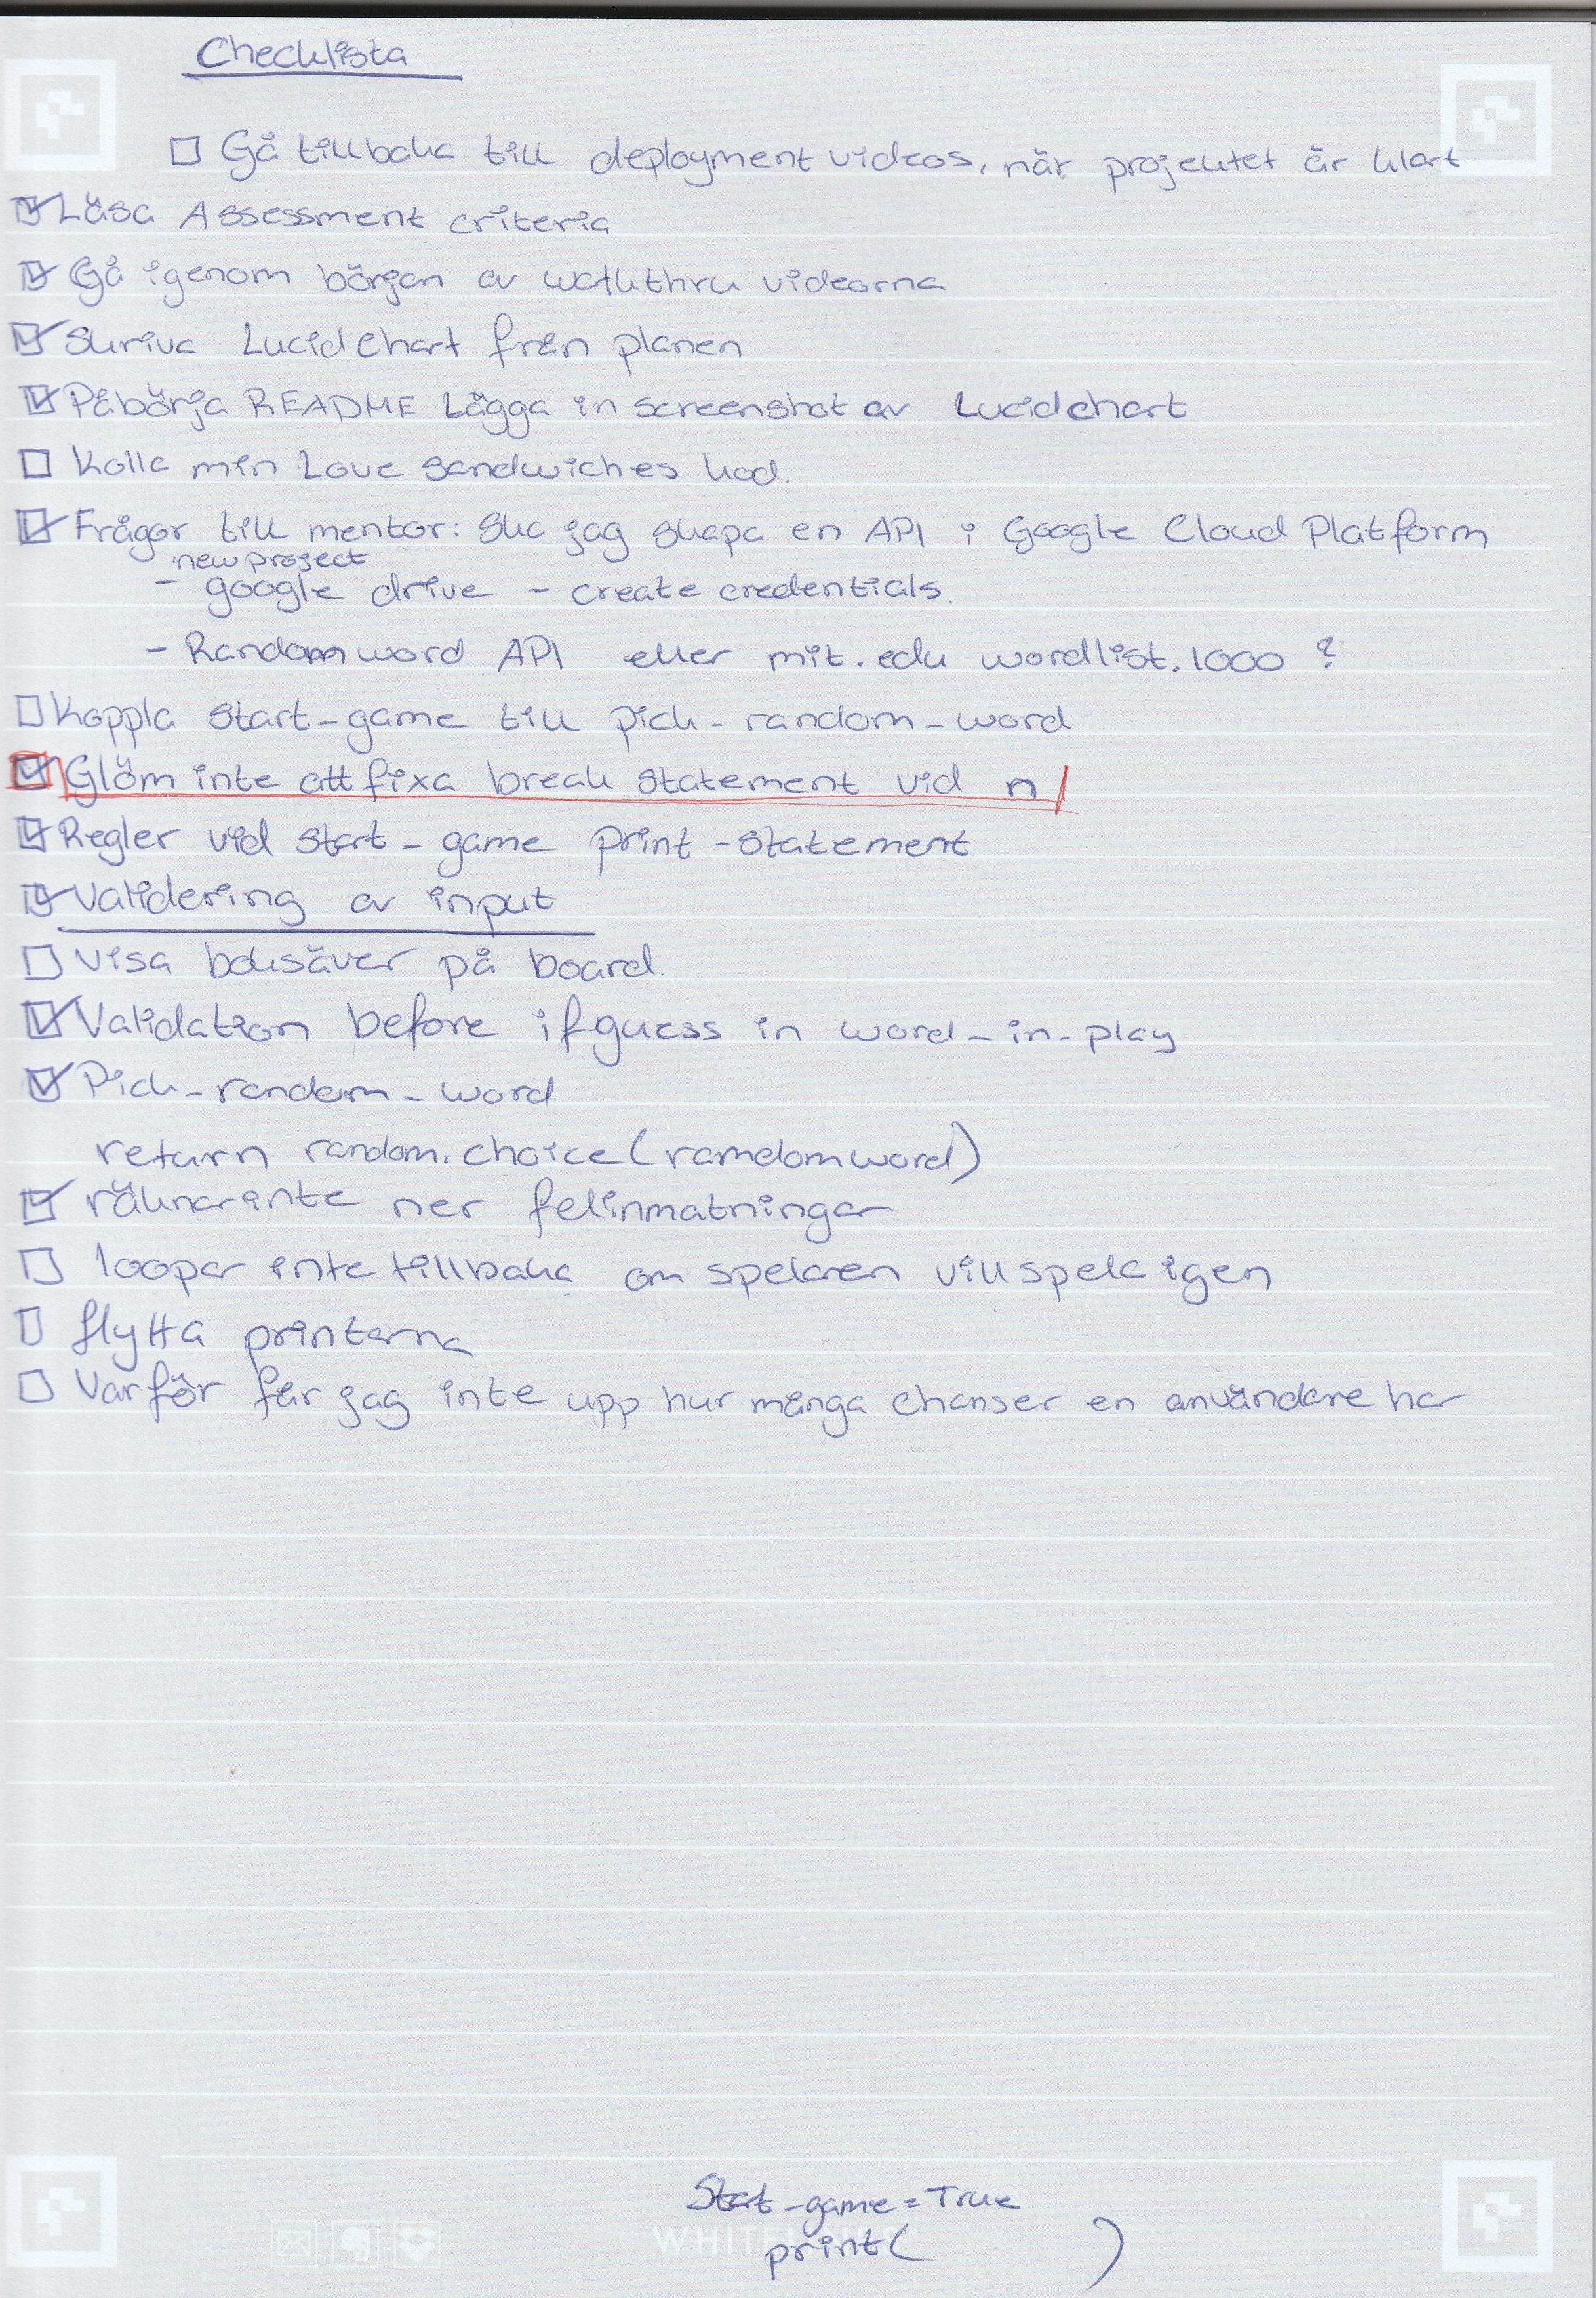 Checklista
☐ Gå tillbaka till deployment videos, när projektet är klart
☑ Läsa Assessment criteria
☑ Gå igenom början av walkthru videorna
☑ Skriva Lucidchart från planen
☑ Påbörja README Lägga in screenshot av Lucidchart
☐ Kolla min Love Sandwiches kod.
☑ Frågor till mentor: Ska jag skapa en API i Google Cloud Platform
new project
- google drive - create credentials.
- Random word API eller mit.edu wordlist.1000 ?
☐ Koppla start-game till pick-random-word
☑ Glöm inte att fixa break statement vid n
☑ Regler vid start-game print-statement
☑ Validering av input
☐ Visa boksäver på board.
☑ Validation before if guess in word-in-play
☑ Pick-random-word
return random.choice(ramdomword)
☑ räknar inte ner felinmatningar
☐ loopar inte tillbaka om spelaren vill spela igen
☐ flytta printarna
☐ Varför får jag inte upp hur många chanser en användare har
Start-game = True
print( )
WHITELINES